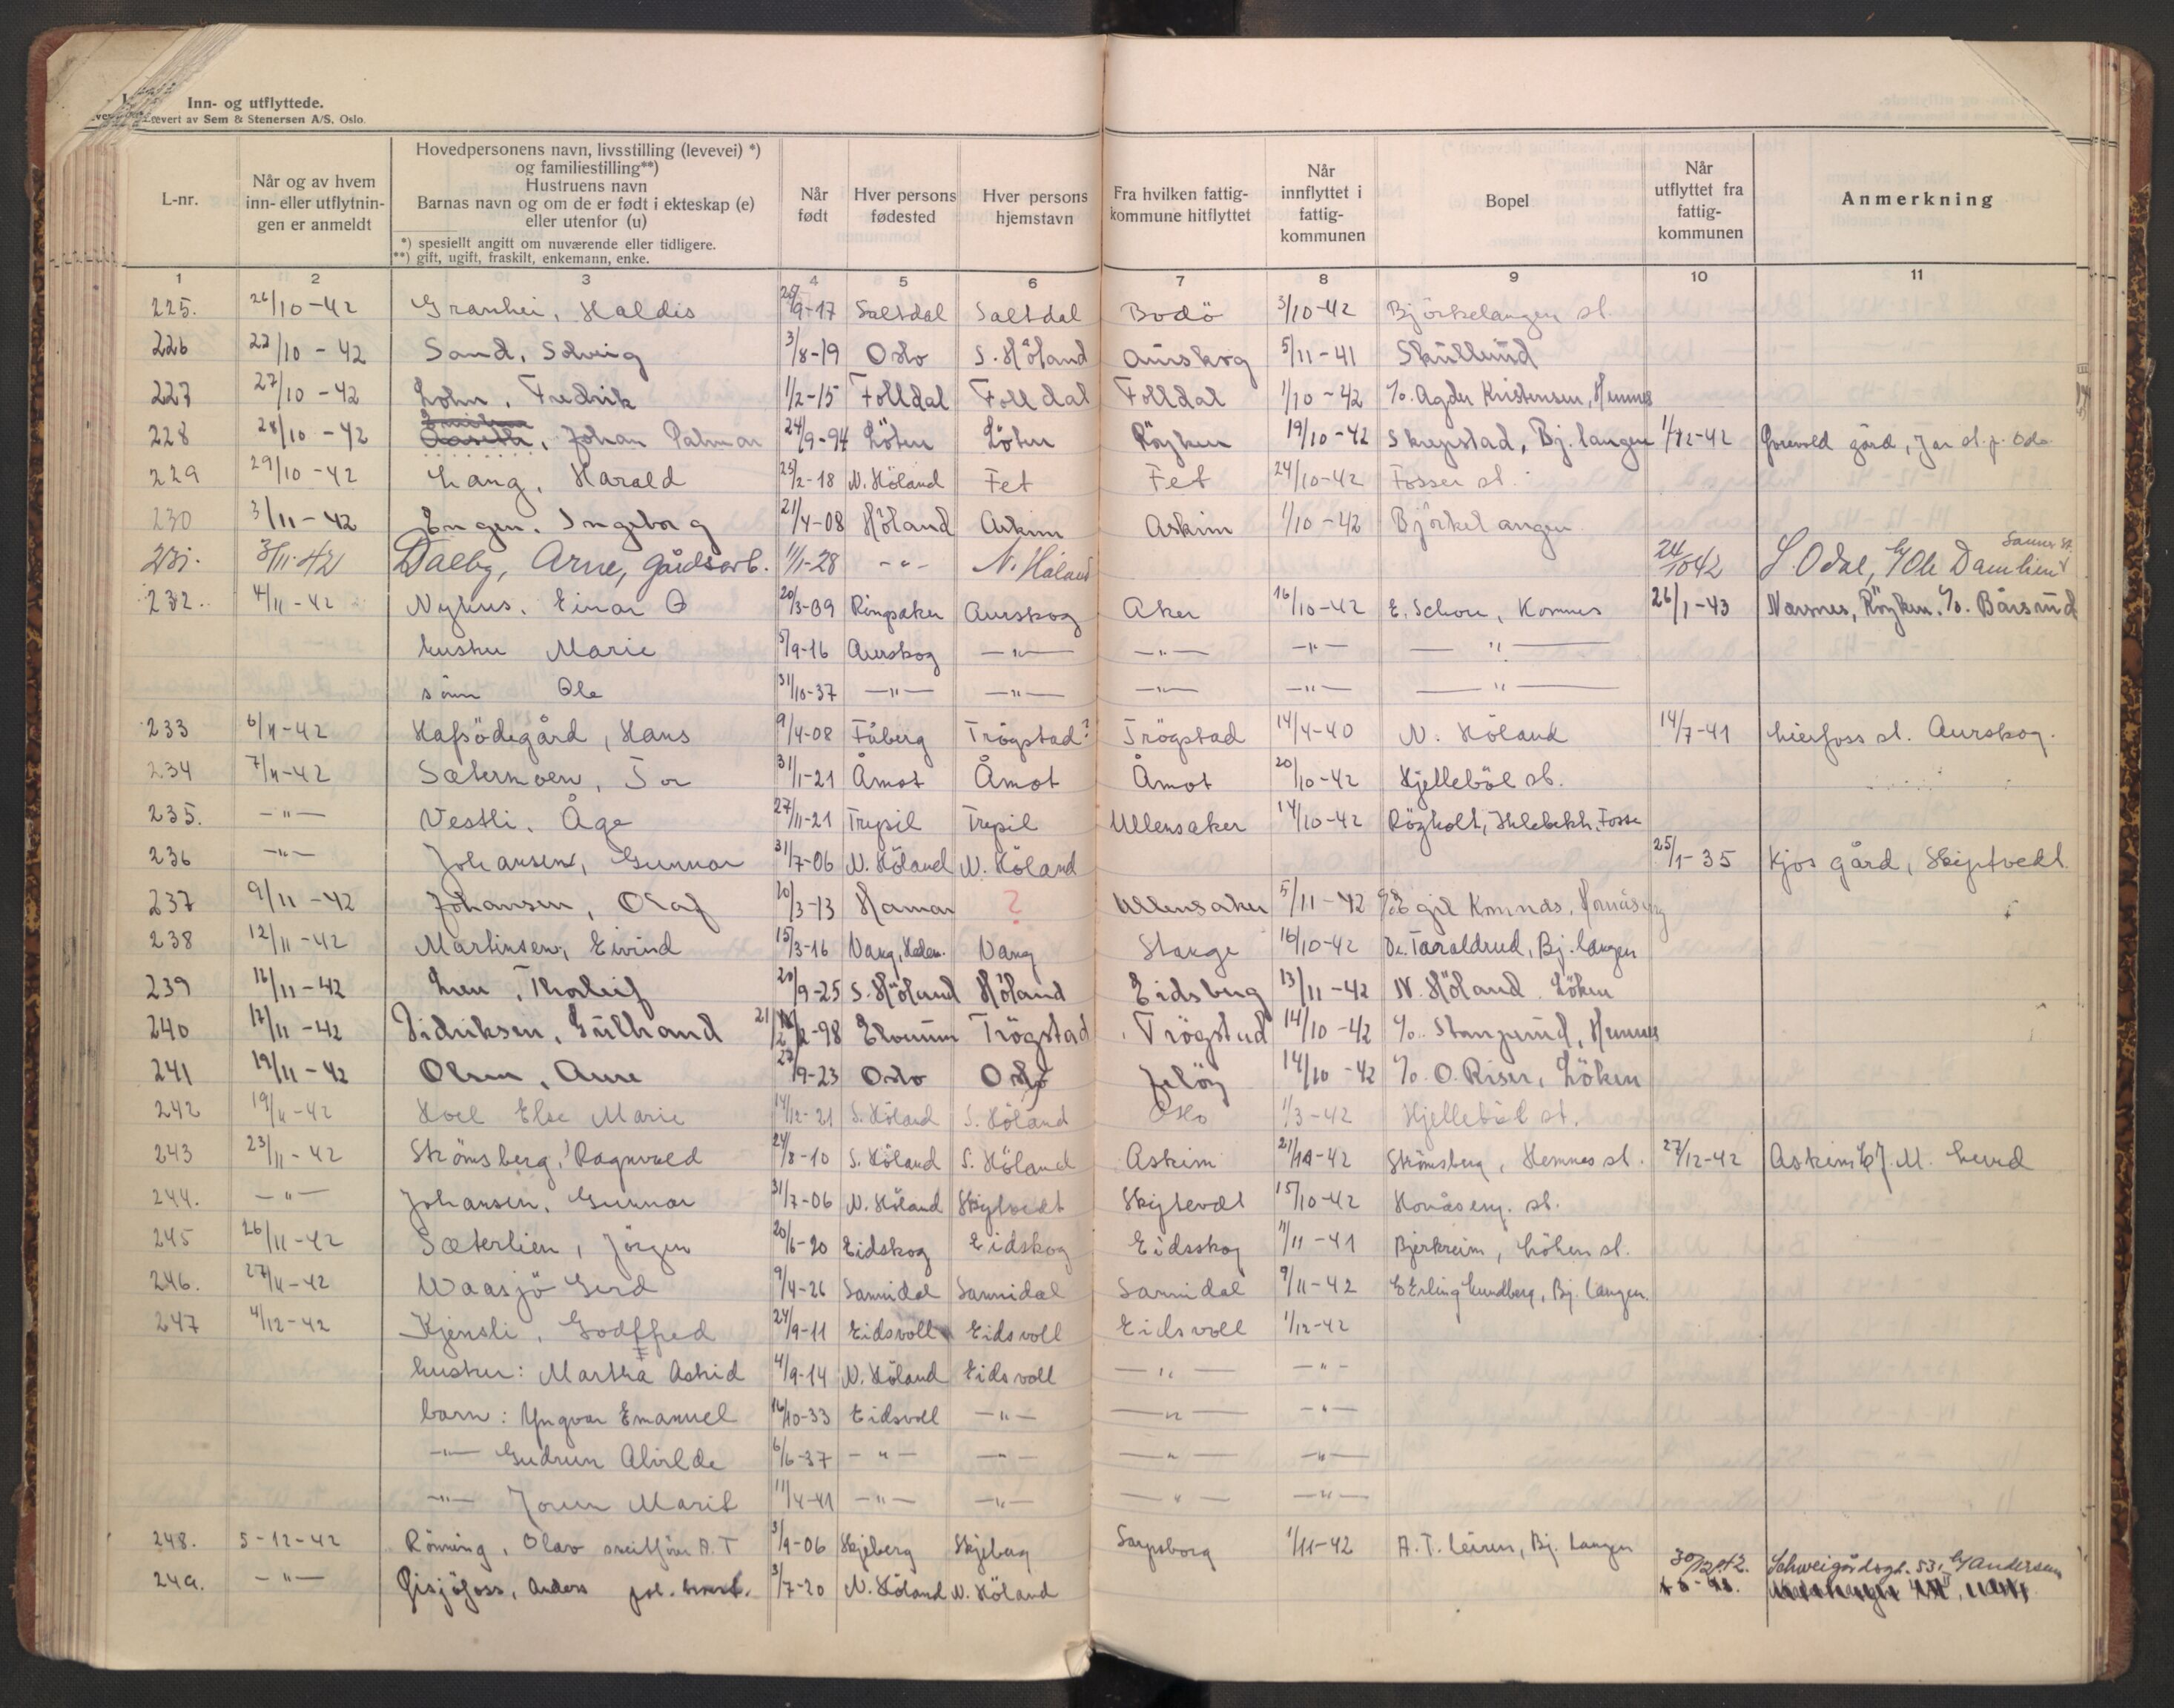 Inn- og utflyttede.
Levert av Sem & Stenersen A/S, Oslo.
L-nr. | Når og av hvem inn- eller utflytnin-gen er anmeldt | Hovedpersonens navn, livsstilling (levevei) *) og familiestilling**) Hustruens navn Barnas navn og om de er født i ekteskap (e) eller utenfor (u) *) spesiellt angitt om nuværende eller tidligere. **) gift, ugift, fraskilt, enkemann, enke. | Når født | Hver persons fødested | Hver persons hjemstavn | Fra hvilken fattig-kommune hitflyttet | Når innflyttet i fattig-kommunen | Bopel | Når utflyttet fra fattig-kommunen | Anmerkning
1 2 3 4 5 6 7 8 9 10 11
225. 26/10-42 Granhei, Haldis 28/9-17 Saltdal Saltdal Bodö 3/10-42 Björkelangen st.
226 22/10-42 Sand, Solveig 3/8-19 Oslo S. Höland Aurskog 5/11-41 Skullerud
227 27/10-42 Lohn, Fredrik 1/2-15 Folldal Folldal Folldal 1/10-42 c/o. Agder Kristensen, Hemnes
228 28/10-42 Johan Palmar 24/9-94 Löten Löten Röyken 19/10-42 Skrepstad, Bj.langen 1/12-42 gård, Jar st. p. Oslo
229 29/10-42 Lang, Harald 25/2-18 N. Höland Fet Fet 24/10-42 Fosser st.
230 3/11-42 Engen, Ingeborg 21/4-08 Höland Askim Askim 1/10-42 Björkelangen
231. 3/11-42 Dalby, Arne, gårdsarb. 11/1-28 -"- N. Höland 24/10 42 S. Odal, c/o Ole Damlien Sanner st.
232. 4/11-42 Nyhus, Einar O 20/3-09 Ringsaker Aurskog Aker 16/10-42 E. Schou, Komnes 26/1-43 Nærsnes, Röyken. c/o. Bårsrud
hustru Marie 5/9-16 Aurskog -"- -"- -"- -"-
sönn Ole 31/10-37 -"- -"- -"- -"- -"-
233 6/11-42 Hafsödegård, Hans 9/4-08 Fåberg Trögstad? Trögstad 14/4-40 N. Höland 14/7-41 Lierfoss st. Aurskog.
234 7/11-42 Sætermoen, Tor 31/1-21 Åmot Åmot Åmot 20/10-42 Hjelleböl st.
235. -"- Vestli, Åge 27/11-21 Trysil Trysil Ullensaker 14/10-42 Rögholt, Ihlebekk, Fosser
236 -"- Johansen, Gunnar 31/7-06 N. Höland N. Höland 25/1-35 Kjos gård, Skiptvedt.
237 9/11-42 Johansen, Olaf 20/3-13 Hamar ? Ullensaker 5/11-42 c/o Egil Komnæs, Hornåseng
238 12/11-42 Martinsen, Eivind 15/3-16 Vang, Hedm. Vang Stange 16/10-42 Dr. Taraldrud, Bj.langen
239 12/11-42 Lien, Thorleif 20/9-25 S. Höland Höland Eidsberg 13/11-42 N. Höland, Löken
240 17/11-42 Didriksen, Gulbrand 21/2-98 Elverum Trögstad Trögstad 14/10-42 c/o. Stangerud, Hemnes
241 19/11-42 Olsen, Arne 27/9-23 Oslo Oslo Jelöy 14/10-42 c/o. O. Riser, Löken
242 19/11-42 Hoel Else Marie 14/12-21 S. Höland S. Höland Oslo 1/3-42 Hjelleböl st.
243 23/11-42 Strömsberg, Ragnvald 24/8-10 S. Höland S. Höland Askim 21/11-42 Strömsberg, Hemnes st. 27/12-42 Askim c/o J. M. Lund
244. -"- Johansen, Gunnar 31/7-06 N. Höland Skiptvedt Skiptvedt 15/10-42 Honåseng. st.
245 26/11-42 Sæterlien, Jörgen 20/6-20 Eidskog Eidskog Eidsskog 11/11-41 Bjerkreim, Löken st.
246. 27/11-42 Waasjö Gerd 9/4-26 Sannidal Sannidal Sannidal 9/11-42 c/o Erling Lundberg, Bj. langen.
247 4/12-42 Kjensli, Godtfred 24/9-11 Eidsvoll Eidsvoll Eidsvoll 1/12-42
hustru: Martha Astrid 4/9-14 N. Höland Eidsvoll -"- -"-
barn: Yngvar Emanuel 16/10-33 Eidsvoll -"- -"- -"-
-"- Gudrun Alvilde 6/6-37 -"- -"- -"- -"-
-"- Jorun Marit 11/4-41 -"- -"- -"- -"-
248. 5-12-42 Rönning, Olav A.T 3/9-06 Skjeberg Skjeberg Sarpsborg 1/11-42 A. T. leiren, Bj. langen
249. -"- Gisjöfoss, Anders 3/7-20 N. Höland N. Höland 30/12 42. Schweigårdsgt. 53, c/o Andersen